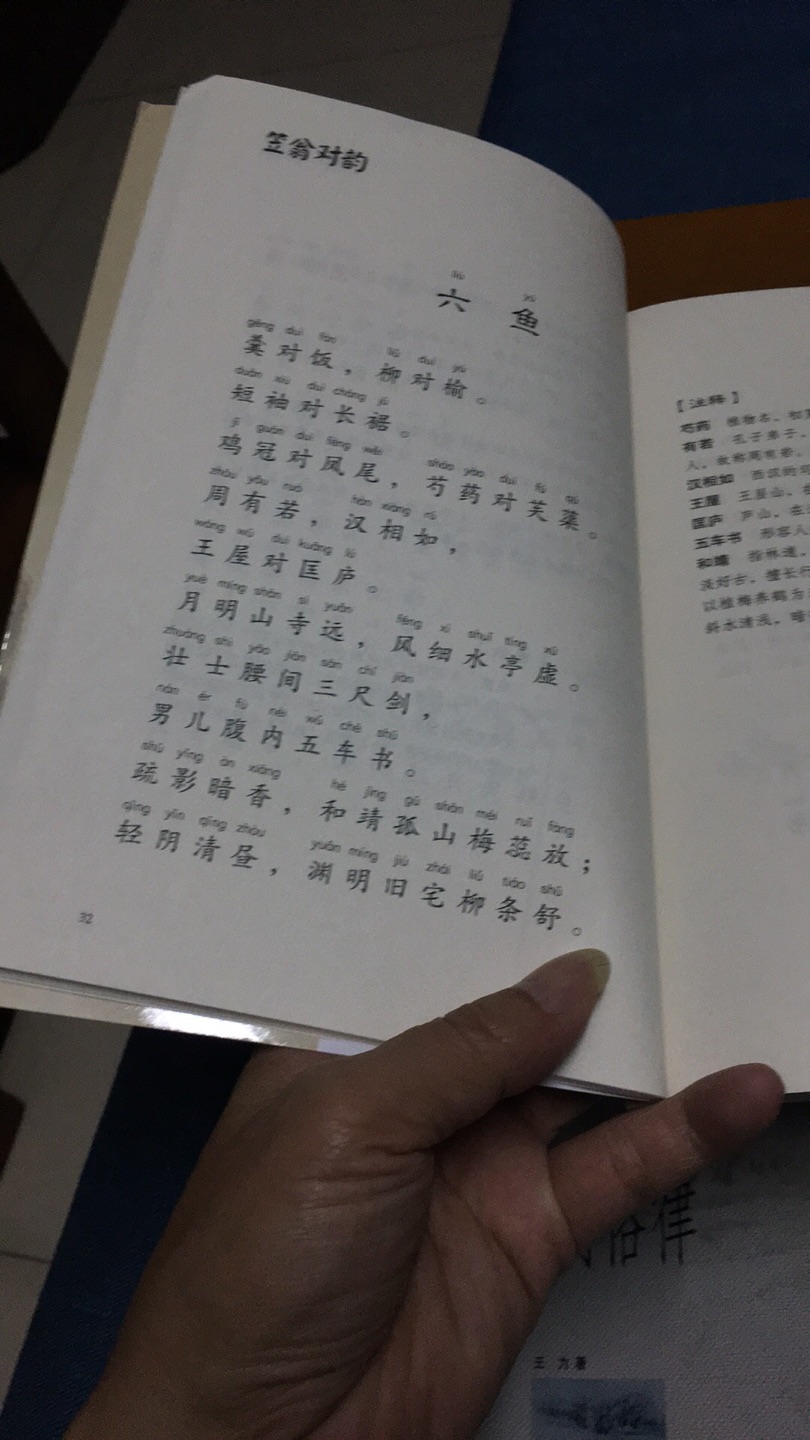 笠翁对韵
liù yú
六 鱼
gēng duì fàn liǔ duì yú
羹对饭，柳对榆。
duǎn xiù duì cháng jū
短袖对长裾。
jī guān duì fèng wěi sháo yào duì fú qú
鸡冠对凤尾，芍药对芙蕖。
zhōu yǒu ruò hàn xiàng rú
周有若，汉相如，
wáng wū duì kuāng lú
王屋对匡庐。
yuè míng shān sì yuǎn fēng xì shuǐ tíng xū
月明山寺远，风细水亭虚。
zhuàng shì yāo jiān sān chǐ jiàn
壮士腰间三尺剑，
nán ér fù nèi wǔ chē shū
男儿腹内五车书。
shū yǐng àn xiāng hé jìng gū shān méi ruǐ fàng
疏影暗香，和靖孤山梅蕊放；
qīng yīn qīng zhòu yuān míng jiù zhái liǔ tiáo shū
轻阴清昼，渊明旧宅柳条舒。
32
【注释】
芍药 植物名，
有若 孔子弟子，
人，故称周有若。
汉相如 西汉的
王屋 王屋山，
匡庐 庐山，在
五车书 形容人
和靖 指林逋，
淡好古，擅长行
以植梅养鹤为
斜水清浅，暗
格律
王力著